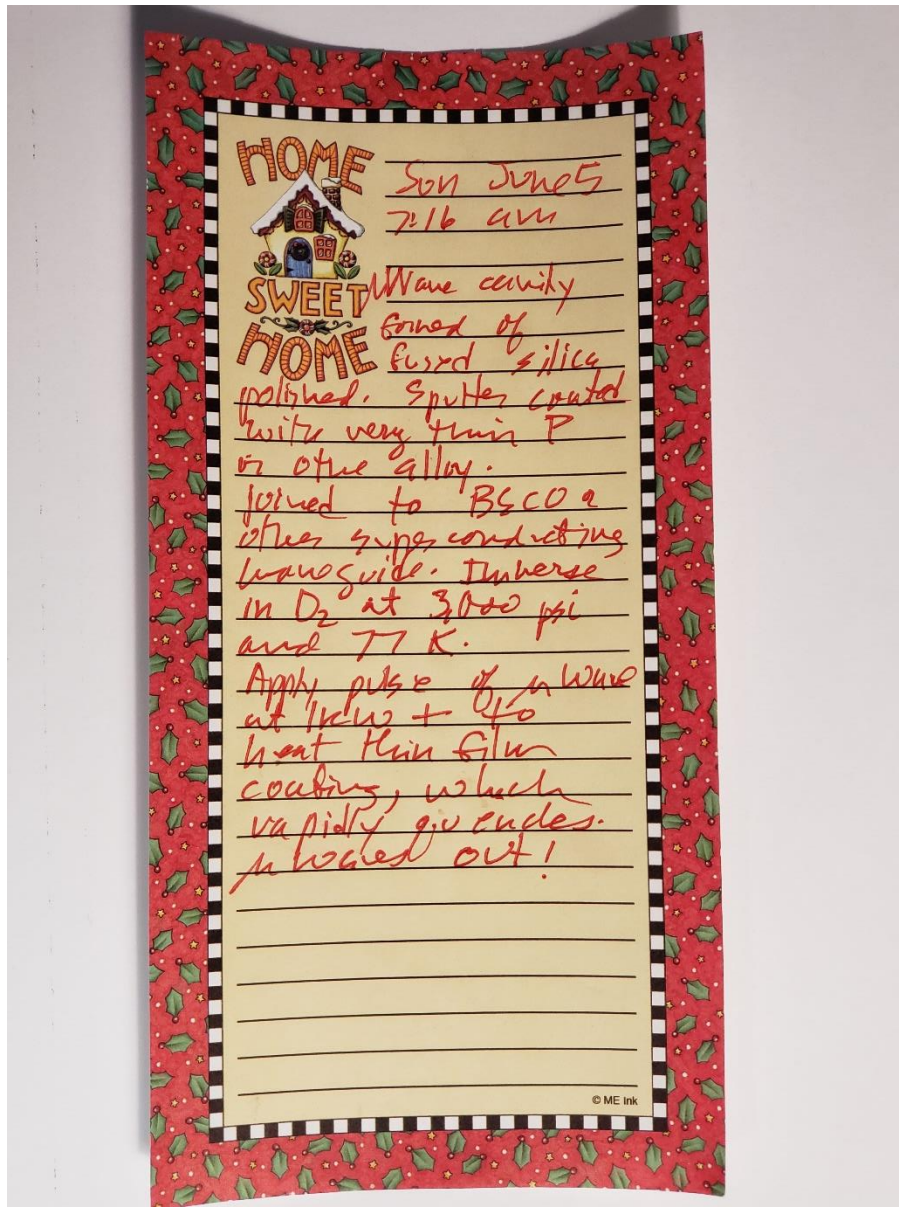 HOME
SWEET
HOME
Sun June 5
7:16 am
μWave cavity
formed of
fused silica
polished. Sputter coated
with very thin P
or other alloy.
joined to BSCO or
other superconducting
waveguide. Immerse
in D₂ at 3,000 psi
and 77 K.
Apply pulse of μWave
at 1kW + to
heat thin film
coating, which
rapidly quenches.
μwaves out!
© ME Ink